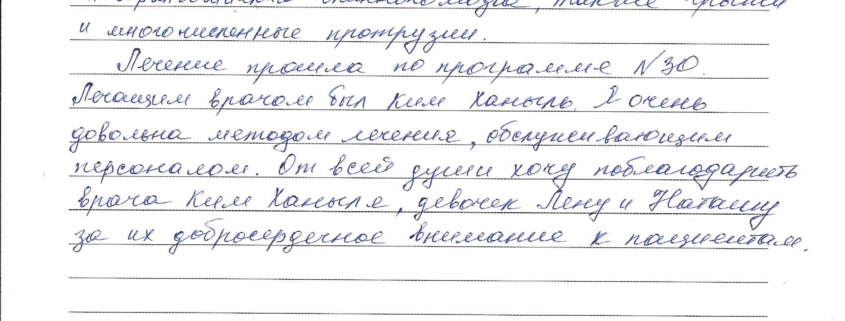 такие грыжи
и многочисленные протрузии.
Лечение прошла по программе №30.
Лечащим врачом был Ким Ханыль. Я очень
довольна методом лечения, обслуживающим
персоналом. От всей души хочу поблагодарить
врача Ким Ханыля, девочек Лену и Наташу
за их добросердечное внимание к пациентам.